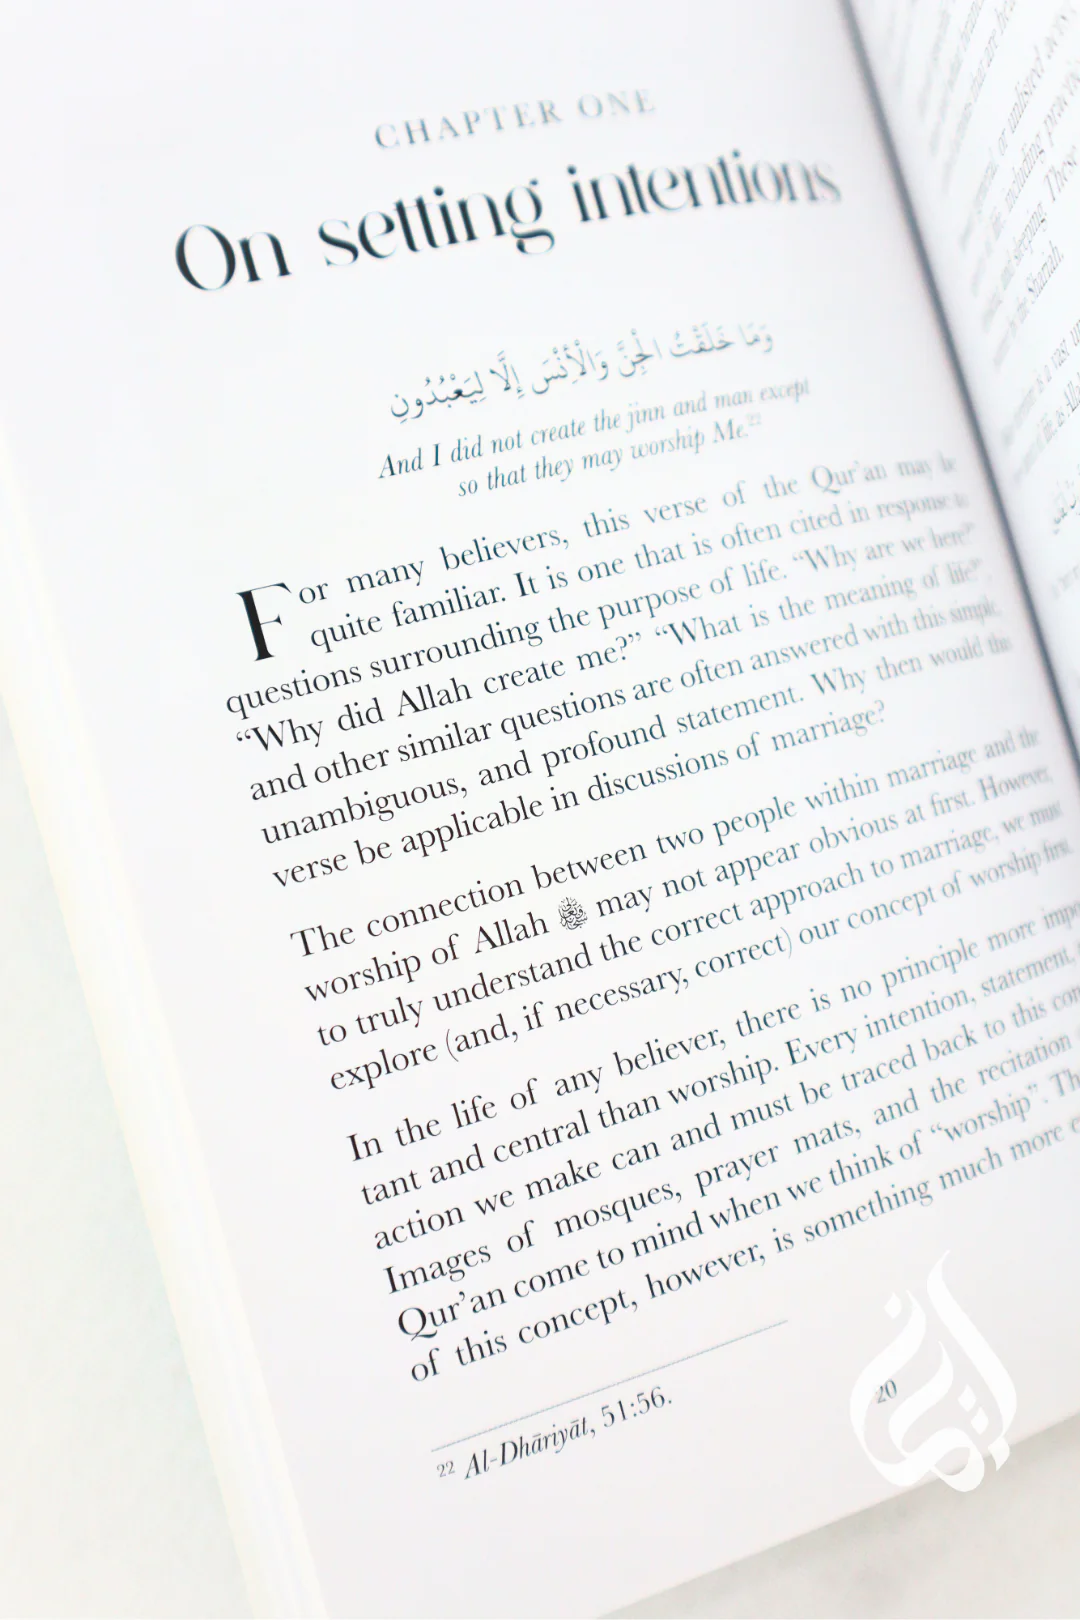 CHAPTER ONE
On setting intentions
وَمَا خَلَقْتُ الْجِنَّ وَالْأِنْسَ إِلَّا لِيَعْبُدُونِ
And I did not create the jinn and man except
so that they may worship Me.22
For many believers, this verse of the Qur'an may be
quite familiar. It is one that is often cited in response to
questions surrounding the purpose of life. “Why are we here?”
“Why did Allah create me?” “What is the meaning of life?”
and other similar questions are often answered with this simple,
unambiguous, and profound statement. Why then would this
verse be applicable in discussions of marriage?
The connection between two people within marriage and the
worship of Allah may not appear obvious at first. However,
to truly understand the correct approach to marriage, we must
explore (and, if necessary, correct) our concept of worship first.
In the life of any believer, there is no principle more impo
tant and central than worship. Every intention, statement,
action we make can and must be traced back to this con
Images of mosques, prayer mats, and the recitation
Qur'an come to mind when we think of “worship”. Th
of this concept, however, is something much more
22 Al-Dhāriyāt, 51:56.
20
or unlisted acts
life, including
and sleeping. These
by the Shariah.
is a vast
life, as